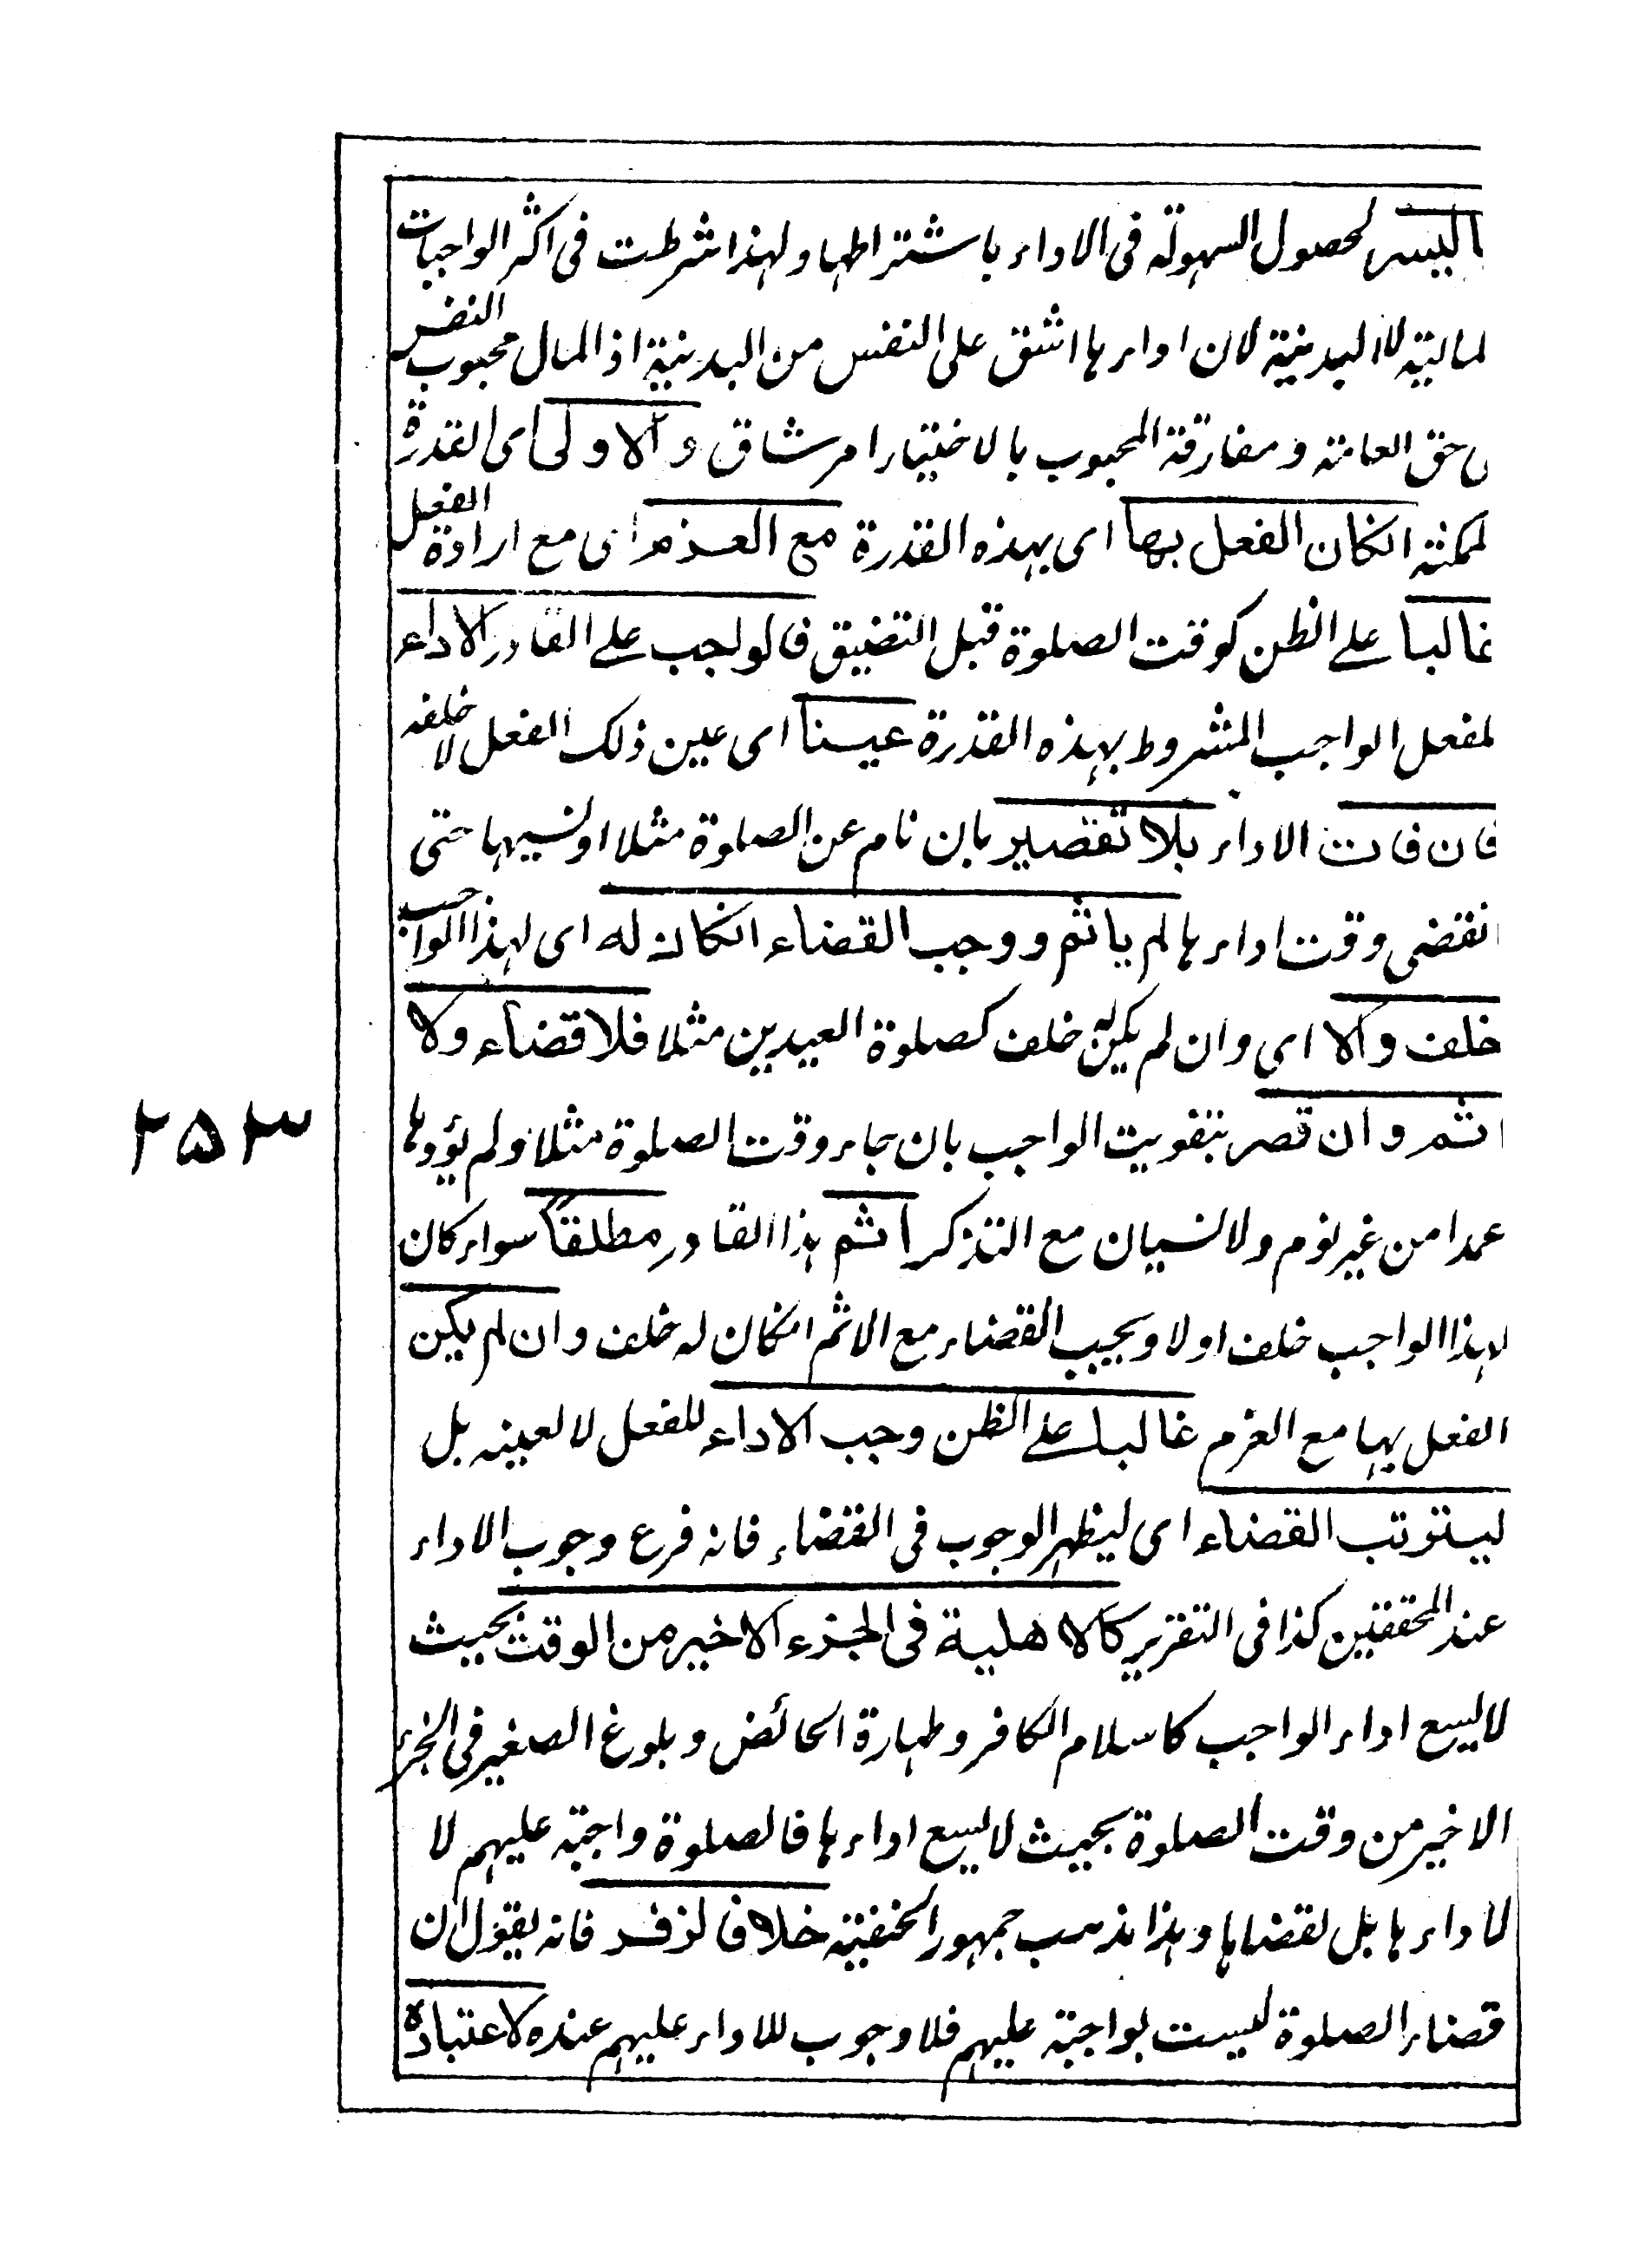 باليسر لحصول السهولة فى الاداء باشتراطها ولهذا شرطت فى اكثر الواجبات
لمالية لا البدنية لان اداءها اشق على النفس من البدنية اذ المال محبوب النفس
ى حق العامة ومفارقة المحبوب بالاختيار امر شاق والاولى اى القدرة
لممكنة انكان الفعل بها اى بهذه القدرة مع العزم اى مع ارادة الفعل
غالبا على الظن كوقت الصلوة قبل التضيق فالواجب على القادر الاداء
لفعل الواجب المشروط بهذه القدرة عينا اى عين ذلك الفعل لا خلفه
فان فات الاداء بلا تقصير بان نام عن الصلوة مثلا او نسيها حتى
انقضى وقت اداءها لم ياثم ووجب القضاء انكان له اى لهذا الواجب
خلف والا اى وان لم يكن له خلف كصلوة العيدين مثلا فلا قضاء ولا
اثم وان قصر بتفويت الواجب بان جاء وقت الصلوة مثلا ولم يؤدها
عمدا من غير نوم ولا نسيان مع التذكر اثم هذا القادر مطلقا سواء كان
لهذا الواجب خلف اولا ويجب القضاء مع الاثم انكان له خلف وان لم يكن
الفعل بها مع العزم غالبا على الظن وجب الاداء للفعل لا لعينه بل
ليترتب القضاء اى ليظهر الوجوب فى القضاء فانه فرع وجوب الاداء
عند المحققين كذا فى التقرير كالاهلية فى الجزء الاخير من الوقت بحيث
لا يسع اداء الواجب كاسلام الكافر وطهارة الحائض وبلوغ الصغير فى الجزء
الاخير من وقت الصلوة بحيث لا يسع اداءها فالصلوة واجبة عليهم لا
لاداءها بل لقضاءها وهذا مذهب جمهور الحنفية خلافا لزفر فانه يقول ان
قضاء الصلوة ليست بواجبة عليهم فلا وجوب للاداء عليهم عنده لاعتباره
٢٥٣